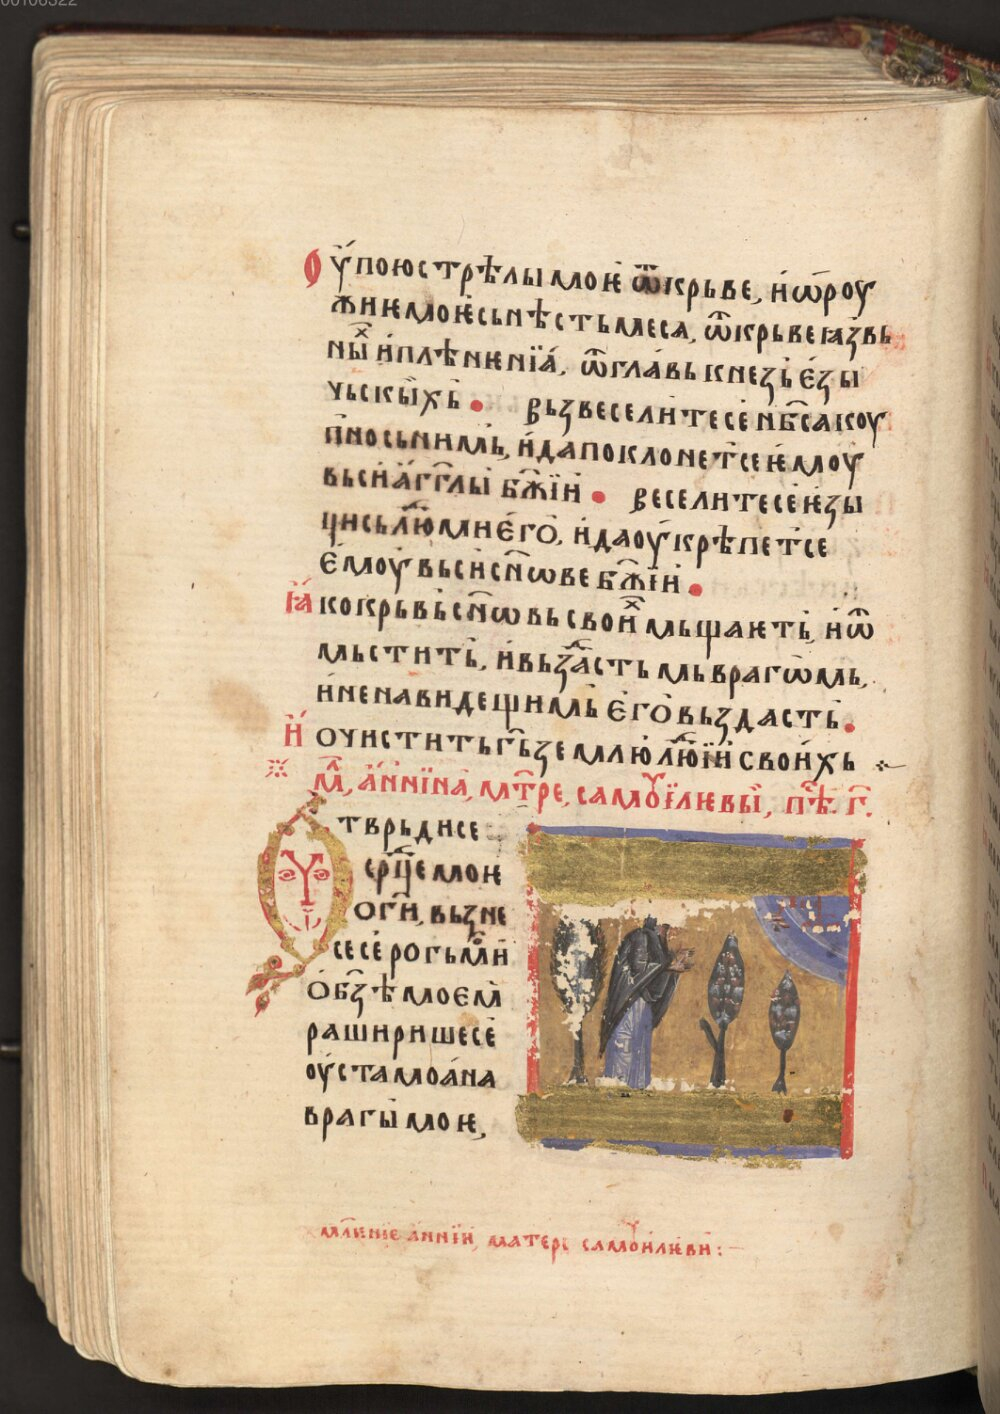 00106322
Оу҆пою стрѣлы моѥ ѿ крьве, и҆ ѡ҆роу
жиѥ моѥ сьнѣсть меса, ѿ крьве ꙗзвь
ны́х и҆ плѣнѥнїа҆, ѿ гла́вь кнезь є҆зы
чьскы́хь • вьзвеселите се нб҃са коу
пно сь нимь, и҆ да поклонет се ѥ҆моу
вьси а҆гг҃лы бж҃їи • веселите се ѥ҆зы
ци сь лю́ми є҆го̀, и҆ да оу҆крѣпет се
є҆моу̀ вьси сн҃ѡве бж҃їи •
Ꙗ҆ко крьвь сн҃ѡвь свои́х мьщаѥть, и҆ ѿ
мьстить, и҆ вьзда́сть мь врагѡ́мь,
и҆ ненавидещимь є҆го̀ вьздасть •
И҆ ѡчистить гь҃ землю лю́їи своихь
М, а҆ннїна, мт҃ре, самоуїлѥвы, пѣ. г҃.
Оутврьди се
ср҃це моѥ
о г҃и, вьзне
се се рогь мо́и
о бз҃ѣ моем
раширише се
оу҆ста моа҆ на
врагы моѥ,
млѥнїе а҆ннїи, матере самоуилѥви :